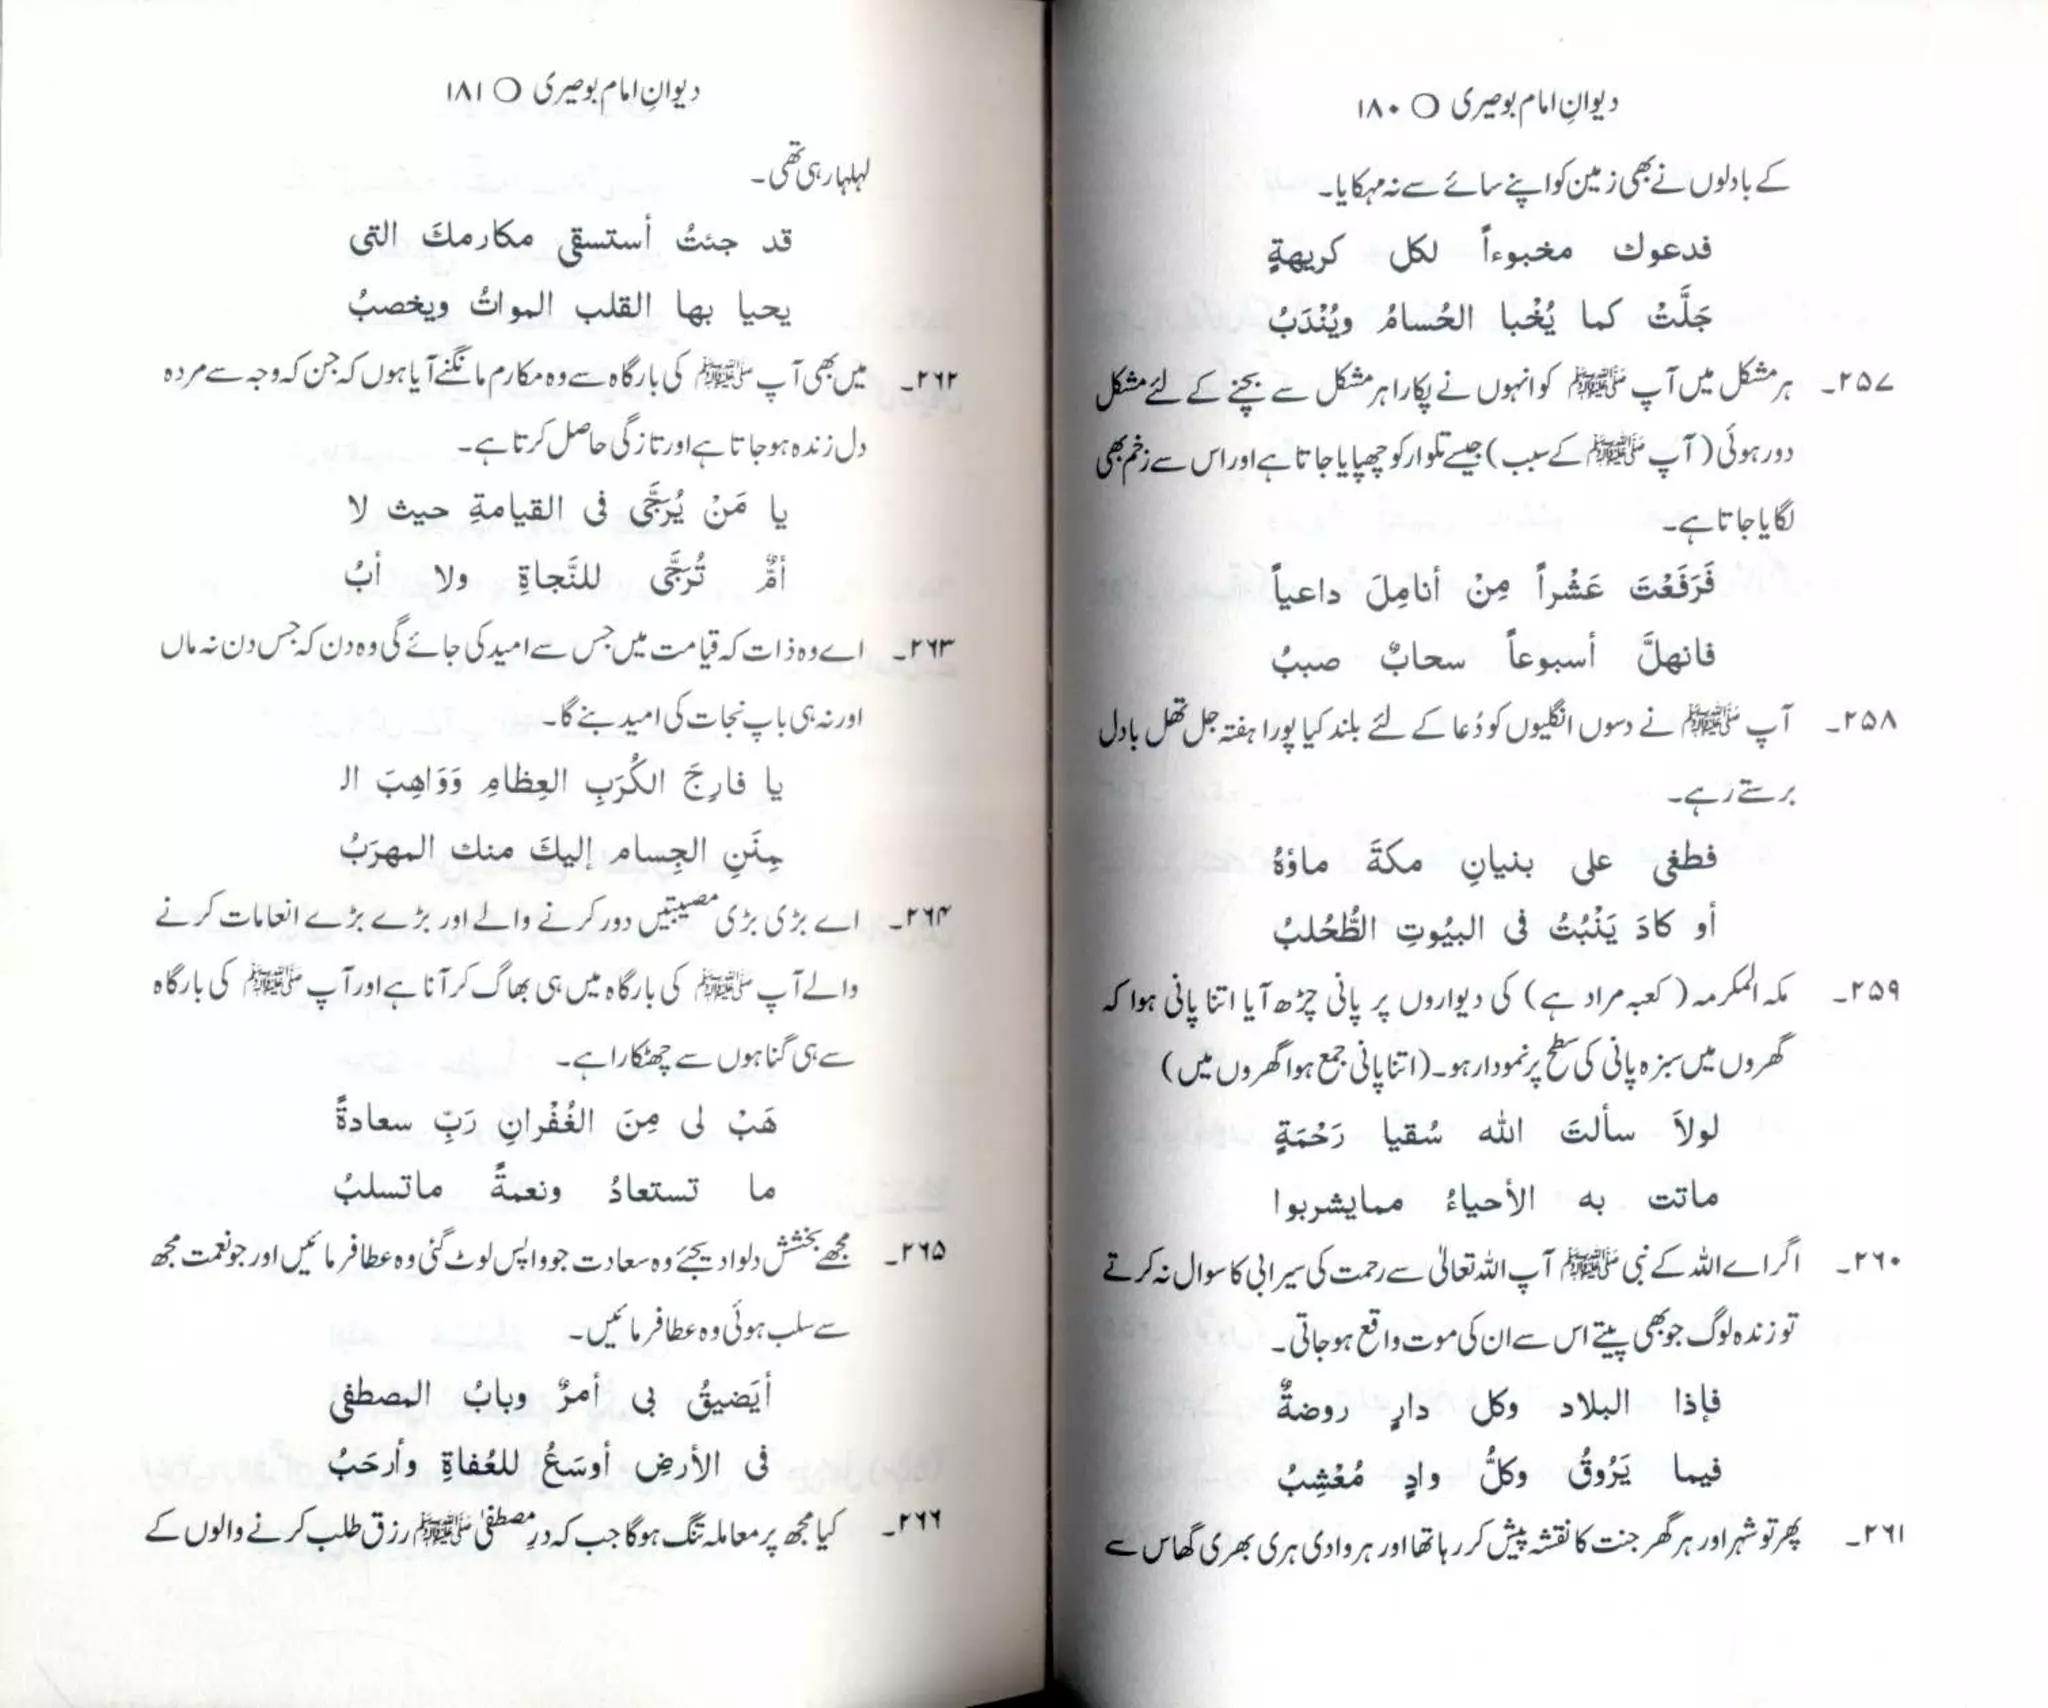 دیوانِ امام بوصیری ○ ۱۸۰
کے بادلوں نے بھی زمین کو اپنے سائے سے نہ مہکایا۔
فدعوك مخبوءاً لكل كريهةٍ
جَلَّتْ كما يُخْبا الحُسامُ ويُنْدَبُ
۲۵۷۔ ہر مشکل میں آپ ﷺ کو انہوں نے پکارا ہر مشکل سے بچنے کے لئے مشکل
دور ہوئی (آپ ﷺ کے سبب) جیسے تلوار کو چھپایا جاتا ہے اور اس سے زخم بھی
لگایا جاتا ہے۔
فَرَفَعْتَ عَشْراً مِنْ أنامِلَ داعياً
فانهلَّ أسبوعاً سحابٌ صببُ
۲۵۸۔ آپ ﷺ نے دسوں انگلیوں کو دُعا کے لئے بلند کیا پورا ہفتہ جل تھل بادل
برستے رہے۔
فطغى على بنيانِ مكةَ ماؤهُ
أو كادَ يَنْبُتُ فى البيُوتِ الطُّحْلبُ
۲۵۹۔ مکہ المکرمہ (کعبہ مراد ہے) کی دیواروں پر پانی چڑھ آیا اتنا پانی ہوا کہ
گھروں میں سبزہ پانی کی سطح پر نمودار ہو۔ (اتنا پانی جمع ہوا گھروں میں)
لولاَ سألتَ الله سُقيا رَحْمَةٍ
ماتت به الأحياءُ ممايشربوا
۲۶۰۔ اگر اے اللہ کے نبی ﷺ آپ اللہ تعالیٰ سے رحمت کی سیرابی کا سوال نہ کرتے
تو زندہ لوگ جو بھی پیتے اس سے ان کی موت واقع ہو جاتی۔
فإذا البلاد وكل دارٍ روضةٌ
فيما يَرُوقُ وكلُّ وادٍ مُعْشِبُ
۲۶۱۔ پھر تو شہر اور ہر گھر جنت کا نقشہ پیش کر رہا تھا اور ہر وادی ہری بھری گھاس سے
دیوانِ امام بوصیری ○ ۱۸۱
لہلہا رہی تھی۔
قد جئتُ أستسقى مكارمكَ التى
يحيا بها القلب المواتُ ويخصبُ
۲۶۲۔ میں بھی آپ ﷺ کی بارگاہ سے وہ مکارم مانگنے آیا ہوں کہ جن کہ وجہ سے مردہ
دل زندہ ہو جاتا ہے اور تازگی حاصل کرتا ہے۔
يا مَنْ يُرَجَّى فى القيامةِ حيث لا
أمٌّ تُرَجَّى للنَّجاةِ ولا أبُ
۲۶۳۔ اے وہ ذات کہ قیامت میں جس سے امید کی جائے گی وہ دن کہ جس دن نہ ماں
اور نہ ہی باپ نجات کی امید بنے گا۔
يا فارِجَ الكُرَبِ العِظامِ وَوَاهِبَ الـ
مِنَنِ الجِسام إليكَ منك المهرَبُ
۲۶۴۔ اے بڑی بڑی مصیبتیں دور کرنے والے اور بڑے بڑے انعامات کرنے
والے آپ ﷺ کی بارگاہ میں ہی بھاگ کر آنا ہے اور آپ ﷺ کی بارگاہ
سے ہی گناہوں سے چھٹکارا ہے۔
هَبْ لى مِنَ الغُفْرانِ رَبِّ سعادةً
ما تستعادُ ونعمةً ماتسلبُ
۲۶۵۔ مجھے بخشش دلوا دیجئے وہ سعادت جو واپس لوٹ گئی وہ عطا فرمائیں اور جو نعمت مجھ
سے سلب ہوئی وہ عطا فرمائیں۔
أيَضيقُ بى أمرٌ وبابُ المصطفى
فى الأرضِ أوسَعُ للعُفاةِ وأرحَبُ
۲۶۶۔ کیا مجھ پر معاملہ تنگ ہوگا جب کہ درِ مصطفیٰ ﷺ رزق طلب کرنے والوں کے